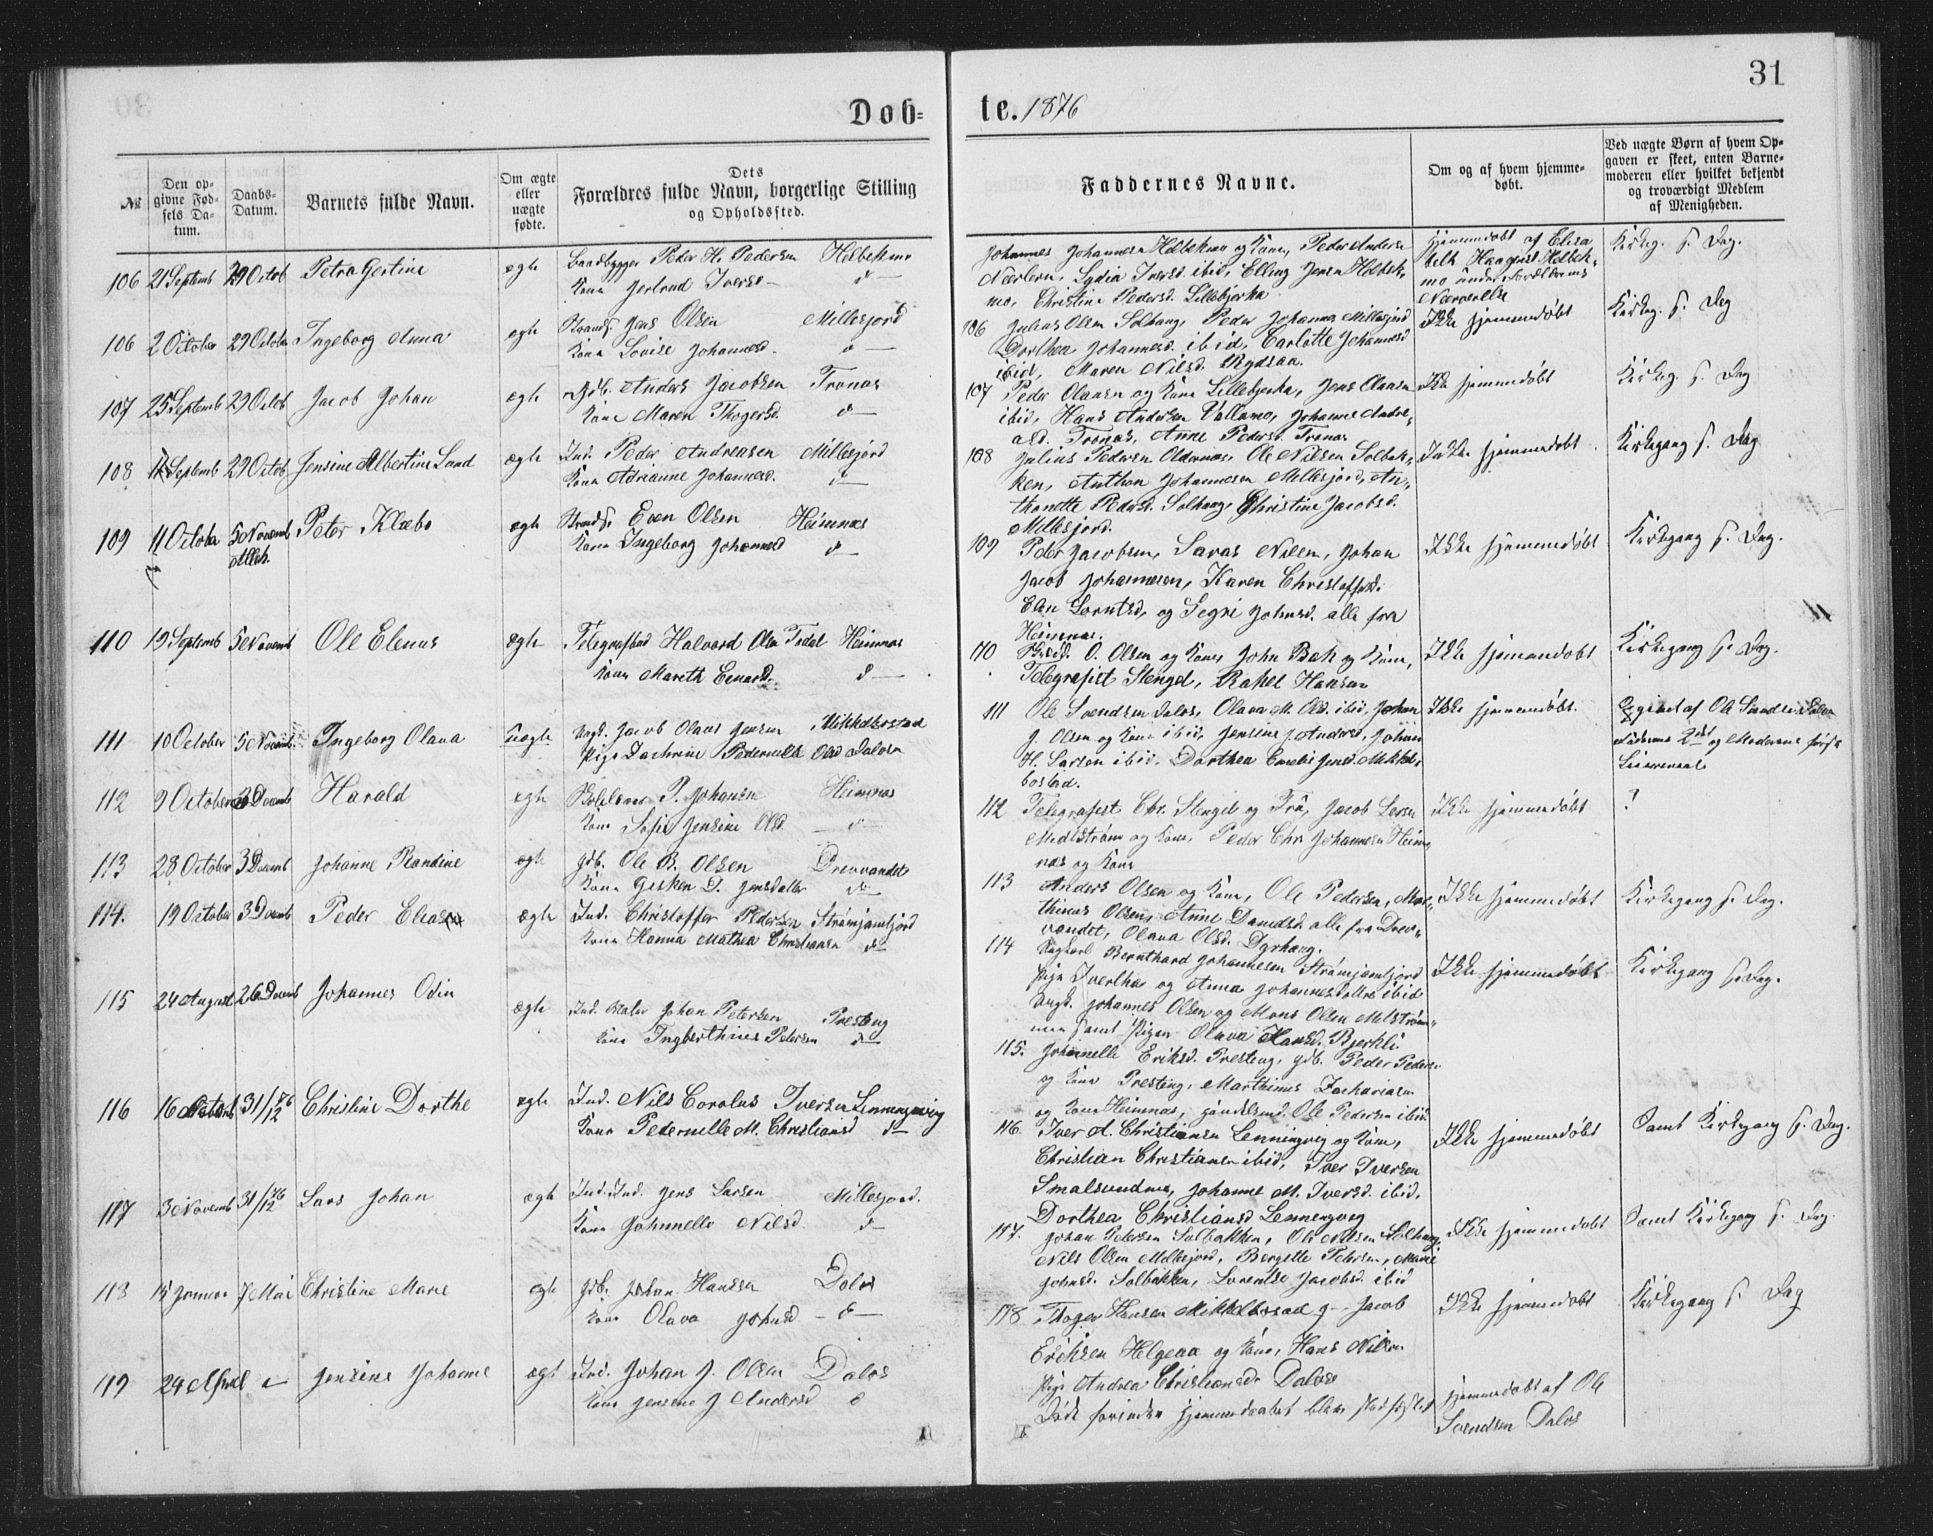 31
Døb=
te. 1876
№
Den op-
givne Fød-
sels Da-
tum.
Daabs-
Datum.
Barnets fulde Navn.
Om ægte
eller
uægte
fødte.
Dets
Forældres fulde Navn, borgerlige Stilling
og Opholdssted.
Faddernes Navne.
Om og af hvem hjemme-
døbt.
Ved uægte Børn af hvem Op-
gaven er skeet, enten Barne-
moderen eller hvilket bekjendt
og troværdigt Medlem
af Menigheden.
106 21 Septemb 29 Octob Petra Gertine ægte Baadbygger Peder H. Pedersen
Kone Jertrud Iversd d
Johannes Johannesen og Kone, Peder Anders
Lydia Iversd. ibid, Elling Jensen
mo, Christine Pedersd. Lillebjerka
hjemmedøbt af Elisa
Nærværelse
Kirkeg. s. Dag.
106 2 October 29 Octobr Ingeborg Anna ægte Strands. Jens Olsen Millesjord
Kone Lovise Johannesd. d
106 Julius Olsen Solhaug, Peder Johannes Millesjord
Dorthea Johannesd. ibid, Carlotte Johannesd
ibid, Maren Nilsd.
Ikke hjemmedøbt
Kirkeg. s. Dag
107 25 Septemb 29 Octob Jacob Johan ægte Gdb. Anders Jacobsen Tronas
Kone Maren Thogersd. d
107 Peder Olausen og Kone Lillebjerka, Jens Olausen
ibid, Hans Andersen Vollamo, Johanne Andre-
asd. Tronas, Anne Pedersd. Tronas
Ikke hjemmedøbt
Kirkeg. s. Dag
108 Septemb 29 Octob Jensine Albertine Lund ægte Ind. Peder Andreasen Millesjord
Kone Adrianne Johannesd. d
108 Julius Pedersen Oldernes, Ole Nilsen Solbak-
ken, Anthon Johannesen Millesjord, An-
thonette Pedersd. Solhaug, Christine Jacobsd.
Millesjord.
Ikke hjemmedøbt
Kirkegang s. Dag
109 11 Octobr 5 Novemb Peter Klæbo ægte Strands. Even Olsen Heimnas
Kone Ingeborg Johannesd d
109 Peder Jacobsen, Savas Nilsen, Johan
Jacob Johannesen, Karen Christoffersd.
Elen Lorntsd, og Segri Johnsd. alle fra
Heimnas.
Ikke hjemmedøbt
Kirkegang s. Dag.
110 19 Septemb 5 Novemb Ole Elenus ægte Halvard Olsen Heimnas
Kone Mareth Einarsd. d
110 O. Olsen og Kone John Bak og Kone,
Telegrafist Stengel, Rakel Hansen
Ikke hjemmedøbt
Kirkegang s. Dag.
111 10 October 5 Novemb Ingeborg Olava Uægte Ungk. Jacob Olaus Jensen Mikkelbostad
Pige Zachrine Pedernille Olsd Dalosen
111 Ole Svendsen Dalos, Olava M. Olsd. ibid, Johan
J. Olsen og Kone ibid, Jensine J Andersd, Johan
H. Larsen ibid. Dorthea Emelie Jensd. Mikkel-
bostad.
Ikke hjemmedøbt
Opgivet af Ole Svendsen Dalos
Faderens 2det og Moderens første
Leiermaal
112 9 October 3 Decemb Harald ægte P. Johansen Heimnas
Kone Sofie Jensine Olsd. d
112 Telegrafist Chr. Stengel og Fru, Jacob Larsen
Midtstrøm og Kone, Peder Chr Johannesen Heim-
nas og Kone
Ikke hjemmedøbt
?
113 28 October 3 Decemb Johanne Randine ægte Gdb. Ole B. Olsen Drevvandet
Kone Gesken D. Jensdatter do
113 Anders Olsen og Kone, Ole Pedersen, Mar-
thinus Olsen, Anne Danielsd. alle fra Drev-
vandet, Olava Olsd. Dyrhaug.
Ikke hjemmedøbt
Kirkegang s. Dag.
114. 19 October 3 Decemb Peder Eliasen ægte Ind. Christoffer Pedersen Strømjamfjord
Kone Hanna Mathea Christiansen do
114 Ungkarl Bernthard Johannesen Strømjamfjord
Pige Iverthe og Anna Johannesdøttre ibid
Ungk. Johannes Olsen og Mons Olsen Midstrøm-
men samt Pigen Olava Hansd. Bjerkli
Ikke hjemmedøbt
Kirkegang s. Dag.
115 24 August 26 Decemb Johannes Odin ægte Ind. Maler Johan Petersen Presteng
Kone Ingberthine Petersen do
115. Johanelle Eriksd. Presteng, Gdb. Peder Peders-
og Kone Presteng, Marthinus Zachariasen
og Kone Heimnas, Ole Pedersen ibid
116 16 October 31/12 76 Christine Dorthe ægte Ind. Nils Corolus Iversen Lenningsvig
Kone Pedernelle M. Christiansd do
116. Iver A. Christiansen Lenningsvig og Kone,
Christian Christiansen ibid, Iver Iversen
Smalsundmo, Johanne M. Iversd. ibid.
Dorthea Christiansd Lenningsvig
Ikke hjemmedøbt
Samt Kirkegang s. Dag.
117 3 Novemb 31/12 76 Lars Johan ægte Ind. Jens Larsen Millesjord.
Kone Johnnelle Nilsd. d
117. Johan Petersen Solbakken, Ole Nilsen Solhaug,
Nils Olsen Millesjord, Bergitte Petersen, Marie
Johnsd. Solbakken, Lorentse Jacobsd. ibid
Ikke hjemmedøbt
Samt Kirkegang s. Dag.
118 15 Januar 7 Mai Christine Marie ægte Gdb. Johan Hansen Dalos
Kone Olava Johnsd d
118 Thoger Hansen Mikkelbostad Jacob
Eriksen Helgeaa og Kone, Hans Nilsen
Pige Andrea Christiansdr Dalos
Ikke hjemmedøbt
Kirkegang s. Dag
119 24 April Jensine Johanne ægt Ind. Johan J. Olsen Dalos
Kone Jensine J Andersd d
Døde forinden hjemmedøbet blev stadfæstet
hjemmedøbt af Ole
Svendsen Dalos